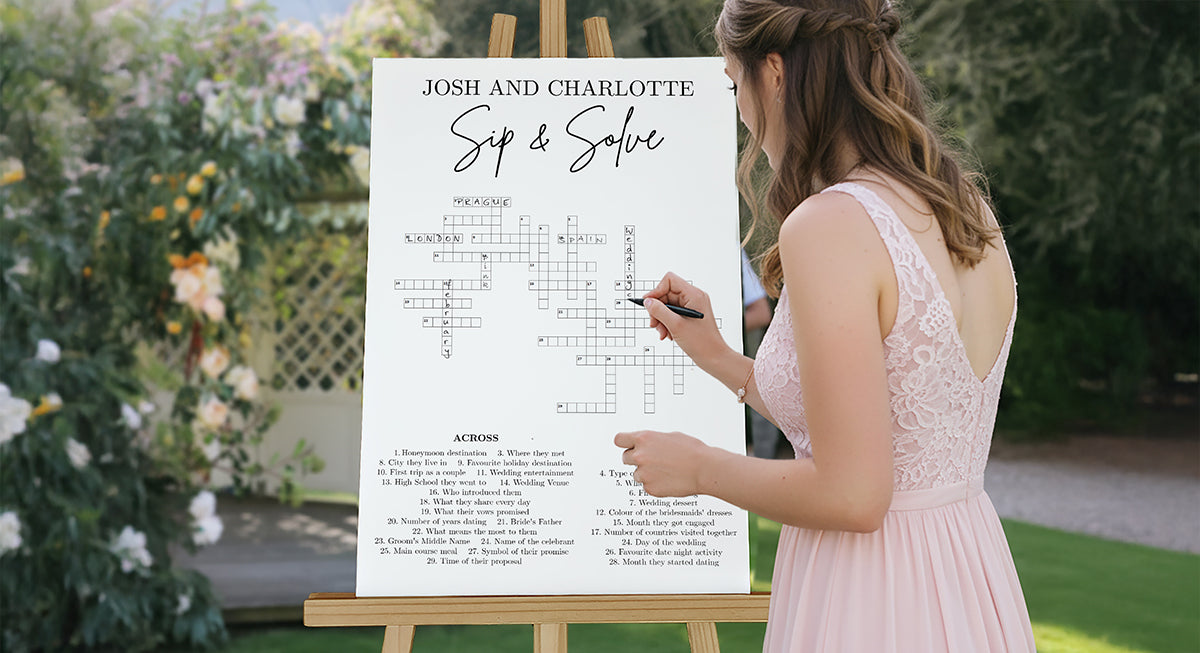 JOSH AND CHARLOTTE
Sip & Solve
PRAGUE
LONDON
SPAIN
Wedding
pink
february
ACROSS
1. Honeymoon destination 3. Where they met
8. City they live in 9. Favourite holiday destination
10. First trip as a couple 11. Wedding entertainment
13. High School they went to 14. Wedding Venue
16. Who introduced them
18. What they share every day
19. What their vows promised
20. Number of years dating 21. Bride's Father
22. What means the most to them
23. Groom's Middle Name 24. Name of the celebrant
25. Main course meal 27. Symbol of their promise
29. Time of their proposal
4. Type
5.
6.
7. Wedding dessert
12. Colour of the bridesmaids' dresses
15. Month they got engaged
17. Number of countries visited together
24. Day of the wedding
26. Favourite date night activity
28. Month they started dating